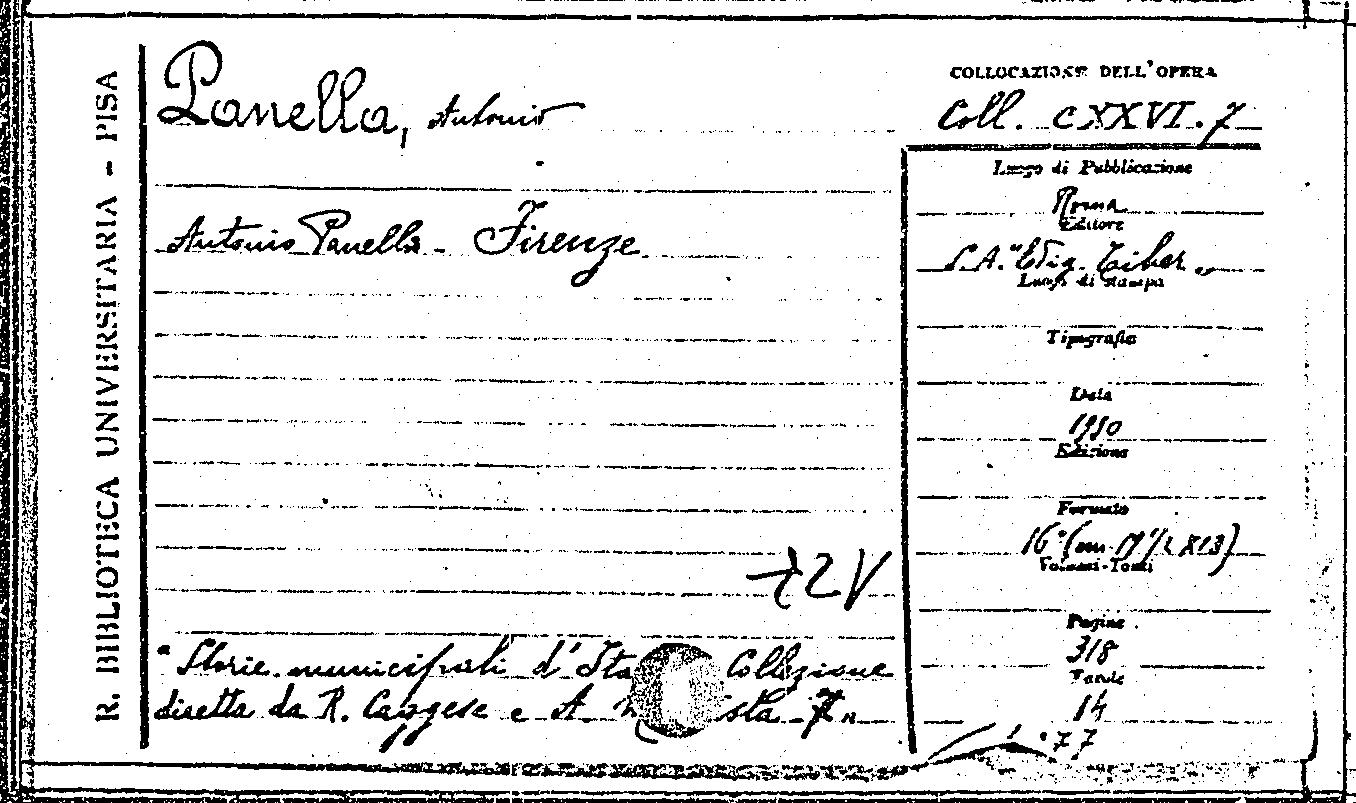 R. BIBLIOTECA UNIVERSITARIA - PISA
Panella, Antonio
Antonio Panella - Firenze
"Storie municipali d'Ita Collezione
diretta da R. Caggese e A. ista 7"
COLLOCAZIONE DELL'OPERA
Coll. CXXVI.7
Luogo di Pubblicazione
Roma
Editore
S.A. "Ediz. Tiber"
Luogo di stampa
Tipografia
Data
1930
Edizione
Formato
16° (cm. 19 1/2 X 13)
Volumi-Tomi
Pagine
318
Tavole
14
77